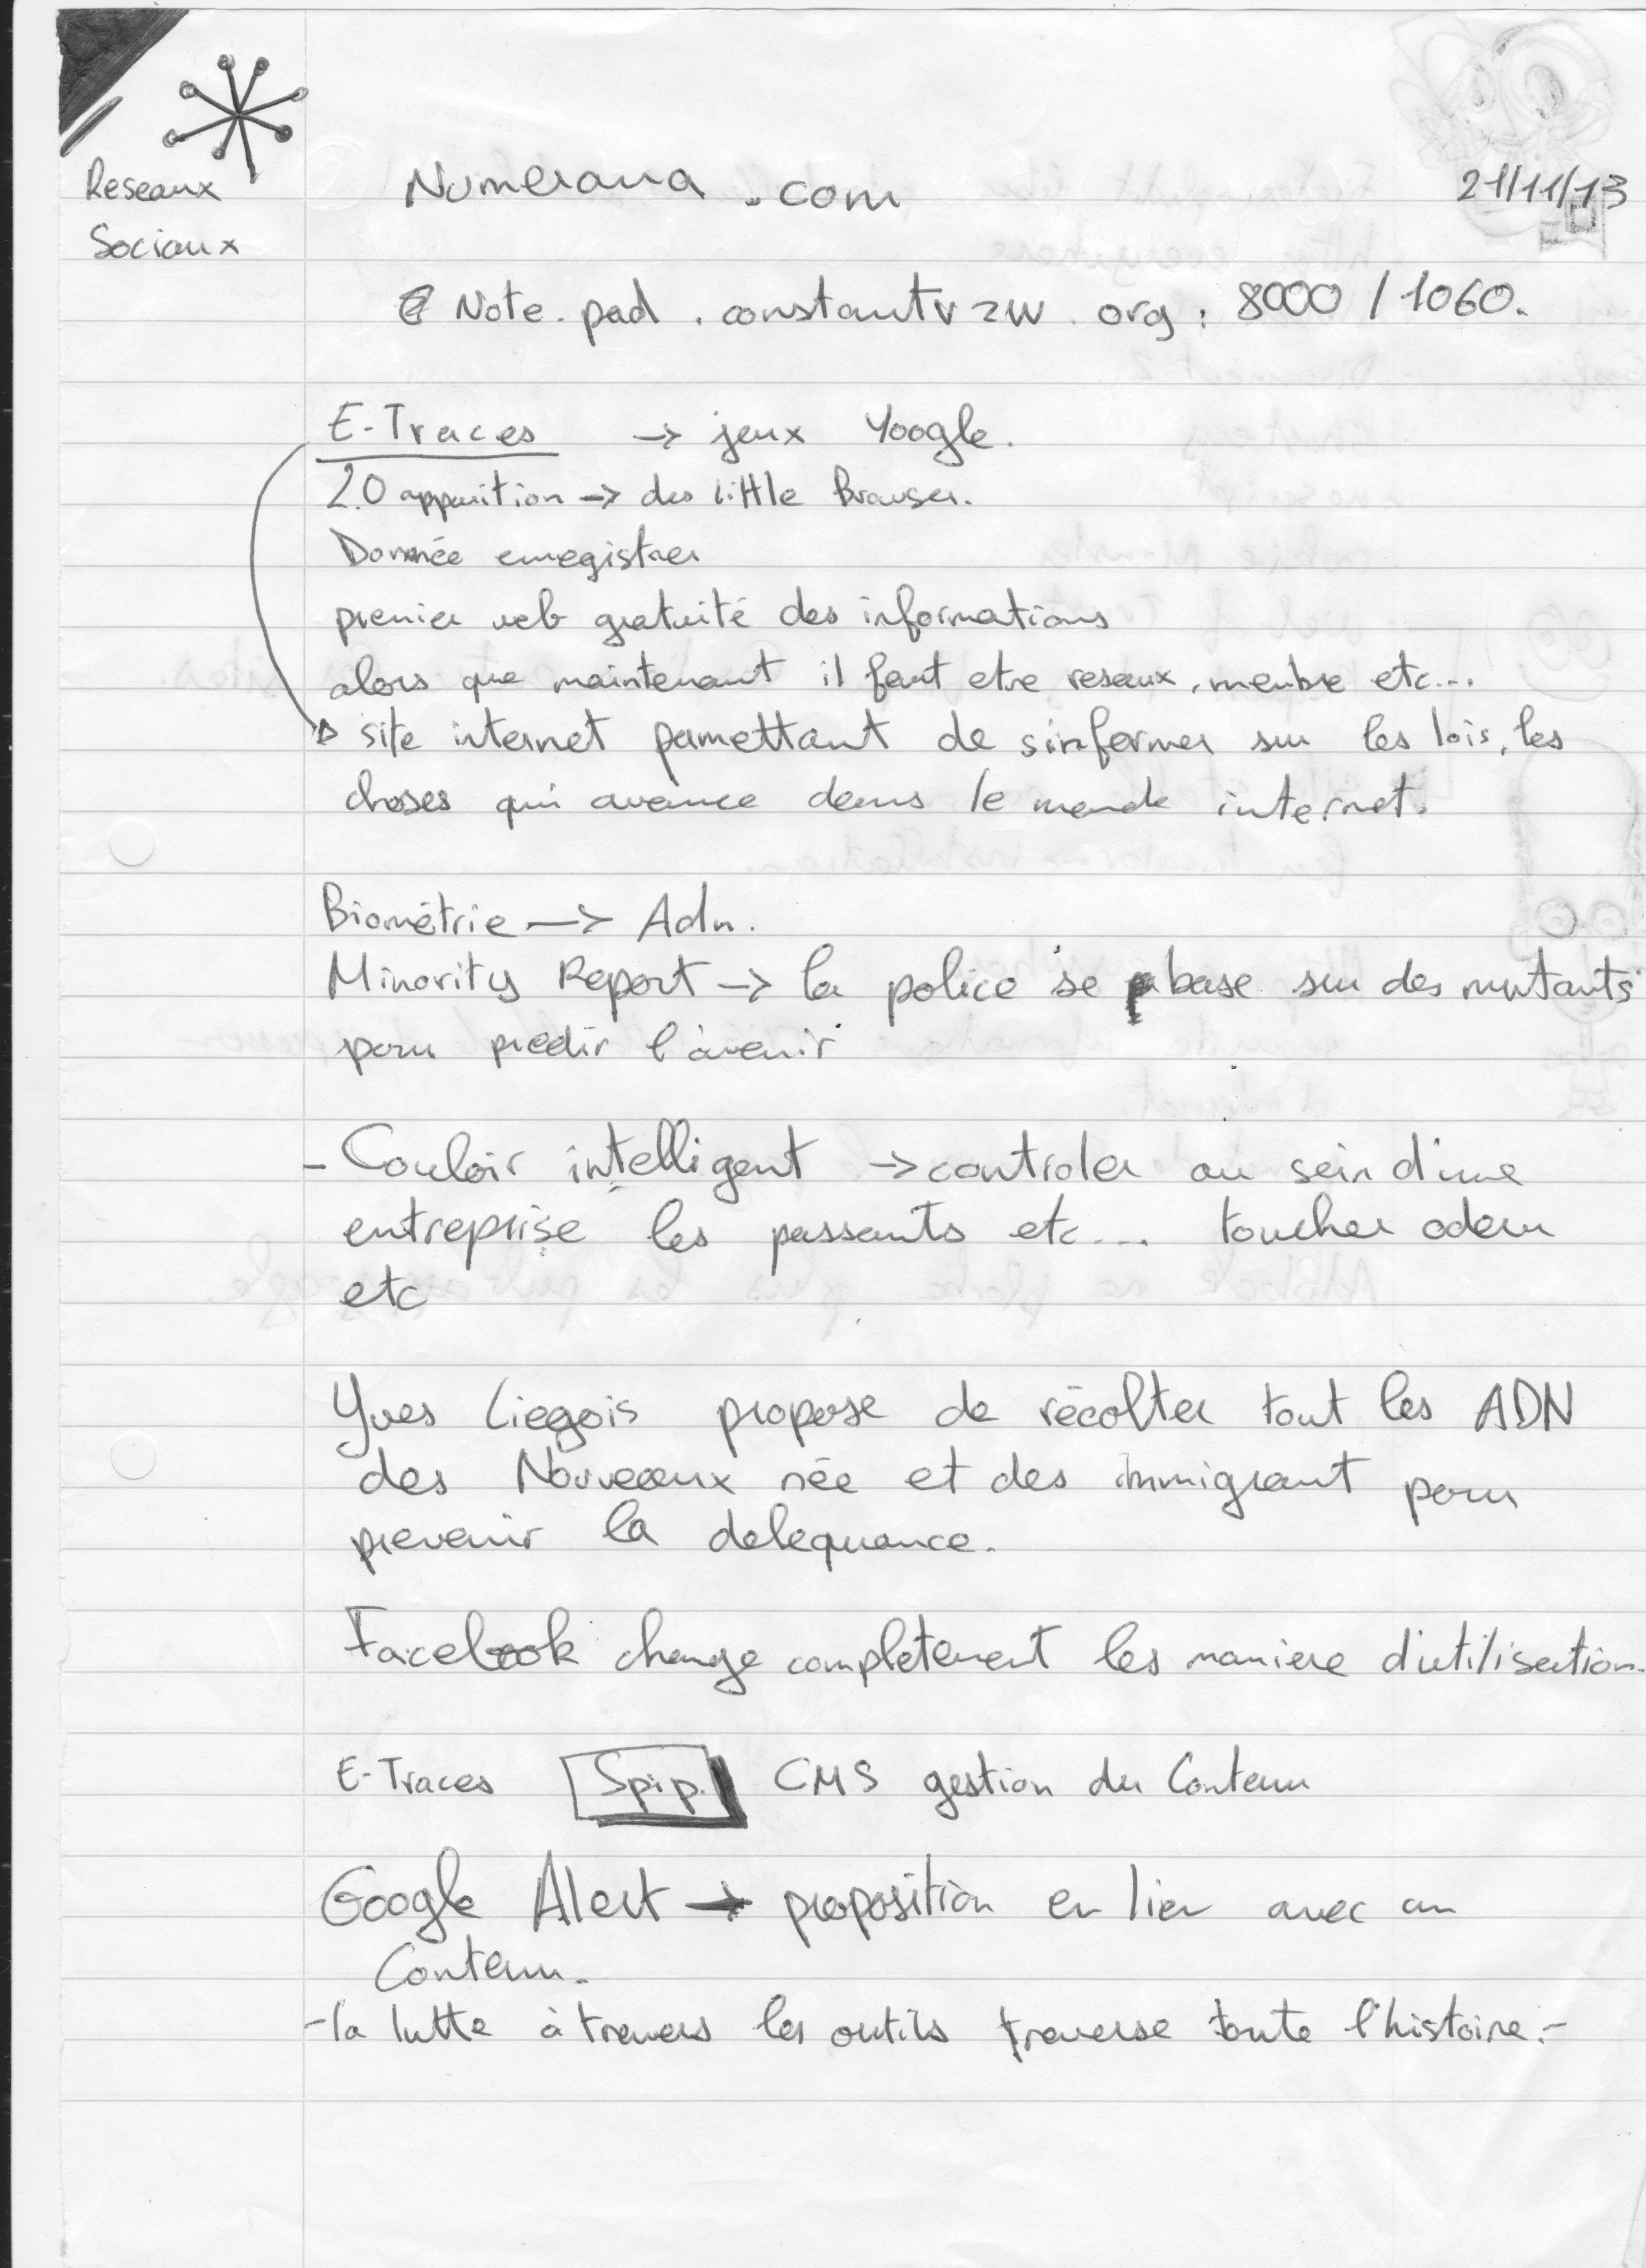 Reseaux
Sociaux
Numerama .com
21/11/13
Note.pad.constantvzw.org: 8000/1060.
E-Traces -> jeux Yoogle.
2.0 apparition -> des little Browser.
Donnée enregistrer
premier web gratuité des informations
alors que maintenant il faut etre reseaux, membre etc...
site internet permettant de sinformer sur les lois, les
choses qui avance dans le monde internet.
Biométrie -> Adn.
Minority Report -> la police se base sur des mutants
pour prédir l'avenir
- Couloir intelligent -> controler au sein d'une
entreprise les passants etc... toucher odeur
etc
Yves Liegois propose de récolter tout les ADN
des Nouveaux née et des immigrant pour
prevenir la delequance.
Facebook change completement les maniere d'utilisation.
E-Traces Spip. CMS gestion du Contenu
Google Alert -> proposition en lien avec un
Contenu.
- la lutte à travers les outils traverse toute l'histoire.-